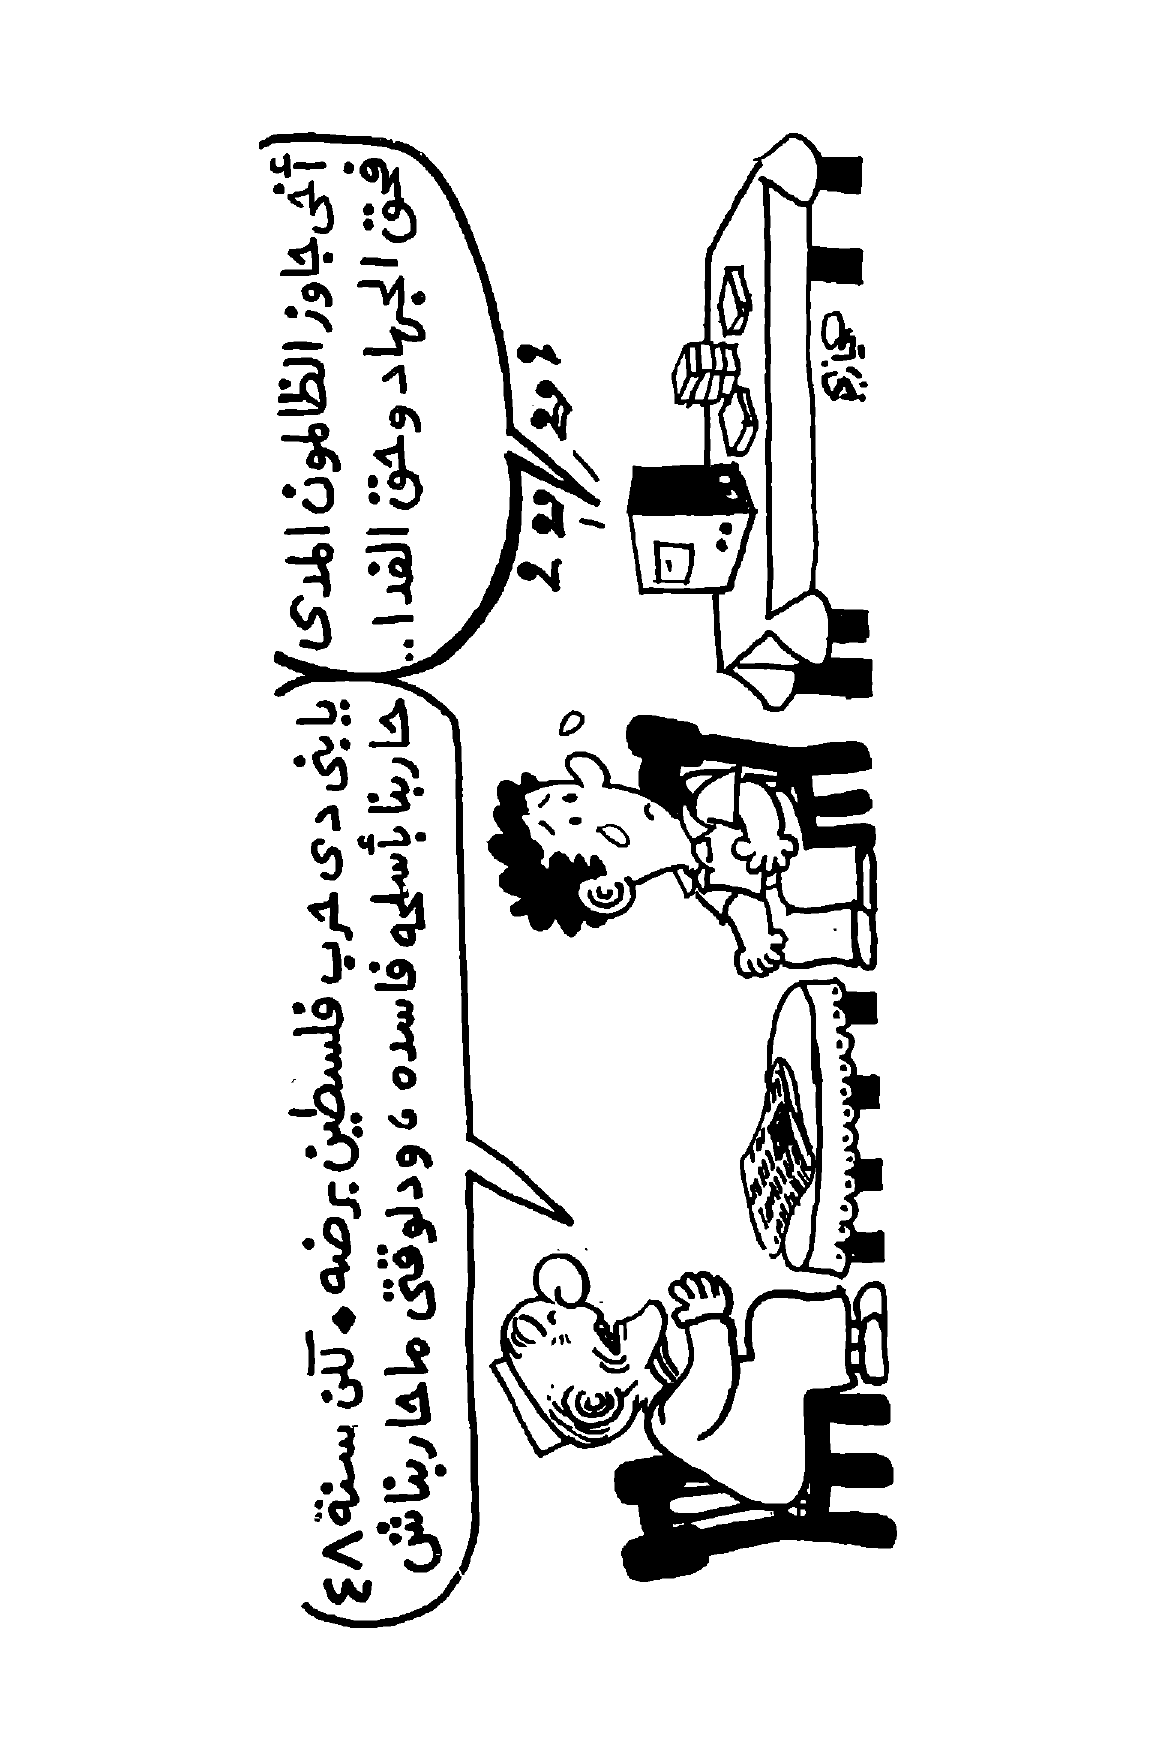 أخى جاوز الظالمون المدى
فحق الجهاد وحق الفدا..
يا بنى دى حرب فلسطين برضه • لكن سنة ٤٨
حاربنا بأسلحه فاسده ، ودلوقتى ما حاربناش